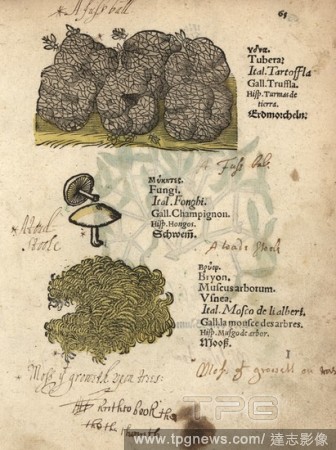 A fuss ball
65
ὕδνα.
Tubera:
Ital. Tartoffla
Gall. Truffla.
Hisp. Turmas de
tierra.
Erdmorcheln.
A Fuss bal.
Μύκητες.
Fungi.
Ital. Fonghi.
Gall. Champignon.
Hisp. Hongos.
Schwem̄.
Stoole
A toade stoole
Βρύον.
Bryon.
Muscus arborum.
Vsnea.
Ital. Mosco de Italberi.
Gall. la mousce des arbres.
Hisp. Masgo de arbor.
Mooß.
I
Moss yt groweth upon trees:
Moss yt growell on
book the
TPG
www.tpgnews.com/達志影像